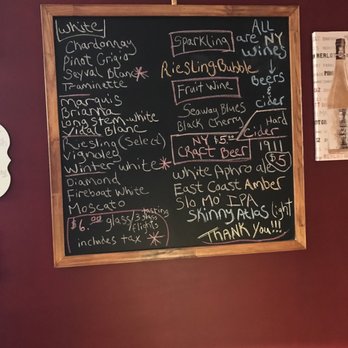 White
Chardonnay
Pinot Grigio
Seyval Blanc*
Traminette
Marquis
Brianna
Long stem white
Vidal Blanc
Riesling (Select)
Vignoles
Winter white*
Diamond
Fireboat White
Moscato
$6.00 glass/3 tasting flights
includes tax *
Sparkling
Riesling Bubble
Fruit Wine
Seaway Blues
Black Cherry
ALL
are NY
wines
Beers
&
cider
Hard
Cider
1911
$5
NY $5.00
Craft Beer
White Aphro ale
East Coast Amber
Slo Mo' IPA
Skinny Atlas Light
THANK YOU!!!
MERLOT